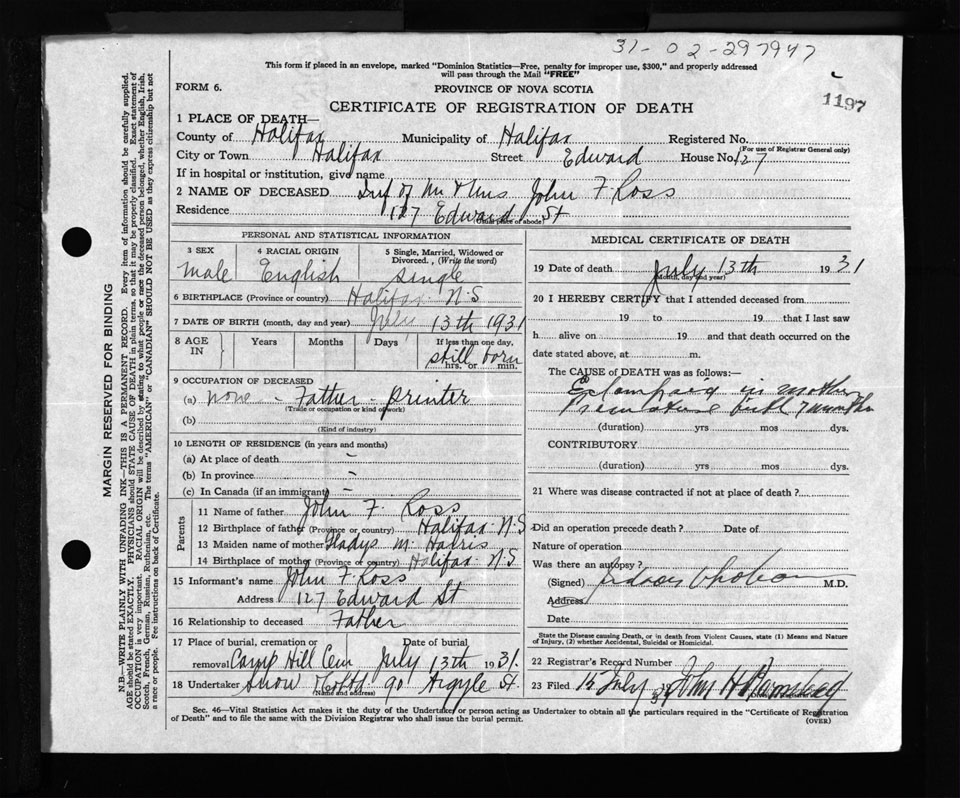 31-02-297947
This form if placed in an envelope, marked "Dominion Statistics—Free, penalty for improper use, $300," and properly addressed
will pass through the Mail "FREE"
FORM 6.
PROVINCE OF NOVA SCOTIA
1197
CERTIFICATE OF REGISTRATION OF DEATH
1 PLACE OF DEATH—
County of Halifax Municipality of Halifax Registered No.
(For use of Registrar General only)
City or Town Halifax Street Edward House No. 127
If in hospital or institution, give name
2 NAME OF DECEASED Inf of Mr & Mrs. John F. Ross
Residence 127 Edward St
(Usual place of abode)
PERSONAL AND STATISTICAL INFORMATION
3 SEX 4 RACIAL ORIGIN 5 Single, Married, Widowed or
Divorced, (Write the word)
Male English Single
6 BIRTHPLACE (Province or country) Halifax N.S
7 DATE OF BIRTH (month, day and year) July 13th 1931
8 AGE IN Years Months Days If less than one day,
still born
hrs. or min.
9 OCCUPATION OF DECEASED
(a) none - Father - printer
(Trade or occupation or kind of work)
(b)
(Kind of industry)
10 LENGTH OF RESIDENCE (in years and months)
(a) At place of death -
(b) In province -
(c) In Canada (if an immigrant) -
Parents
11 Name of father John F. Ross
12 Birthplace of father (Province or country) Halifax N.S
13 Maiden name of mother Gladys M. Harris
14 Birthplace of mother (Province or country) Halifax N.S
15 Informant's name John F. Ross
Address 127 Edward St
16 Relationship to deceased Father
17 Place of burial, cremation or Date of burial
removal Camp Hill Cem July 13th 1931.
18 Undertaker Snow 90 Argyle St
(Name and address)
MEDICAL CERTIFICATE OF DEATH
19 Date of death July 13th 1931
(Month, day and year)
20 I HEREBY CERTIFY that I attended deceased from
19 to 19 that I last saw
h alive on 19 and that death occurred on the
date stated above, at m.
The CAUSE of DEATH was as follows:
Eclampsia in mother
Premature birth 7 months
(duration) yrs mos dys.
CONTRIBUTORY
(duration) yrs mos dys.
21 Where was disease contracted if not at place of death?
Did an operation precede death? Date of
Nature of operation
Was there an autopsy?
(Signed) M.D.
Address
Date
State the Disease causing Death, or in death from Violent Causes, state (1) Means and Nature
of Injury, (2) whether Accidental, Suicidal or Homicidal.
22 Registrar's Record Number
23 Filed 15 July 31 John H
Sec. 46—Vital Statistics Act makes it the duty of the Undertaker or person acting as Undertaker to obtain all the particulars required in the "Certificate of Registration
of Death" and to file the same with the Division Registrar who shall issue the burial permit.
(OVER)
MARGIN RESERVED FOR BINDING
N.B.—WRITE PLAINLY WITH UNFADING INK—THIS IS A PERMANENT RECORD. Every item of information should be carefully supplied.
AGE should be stated EXACTLY. PHYSICIANS should STATE CAUSE OF DEATH in plain terms, so that it may be properly classified. Exact statement of
OCCUPATION is very important. RACIAL ORIGIN will be described by stating to what people or race the deceased person belonged, whether English, Irish,
Scotch, French, German, Russian, Ruthenian, etc. The terms "AMERICAN" or "CANADIAN" SHOULD NOT BE USED as they express citizenship but not
a race or people. See instructions on back of Certificate.